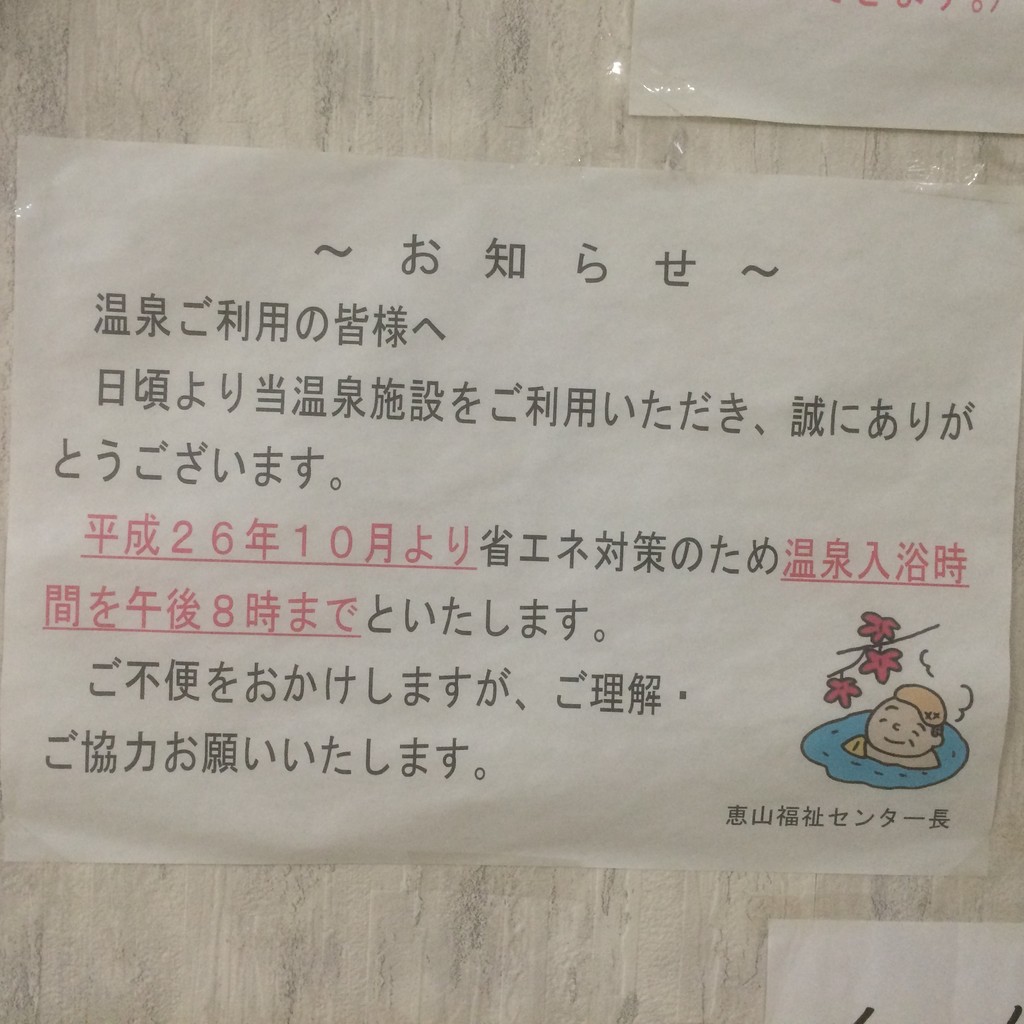 ～　お　知　ら　せ　～
温泉ご利用の皆様へ
日頃より当温泉施設をご利用いただき、誠にありが
とうございます。
平成２６年１０月より省エネ対策のため温泉入浴時
間を午後８時までといたします。
ご不便をおかけしますが、ご理解・
ご協力お願いいたします。
恵山福祉センター長